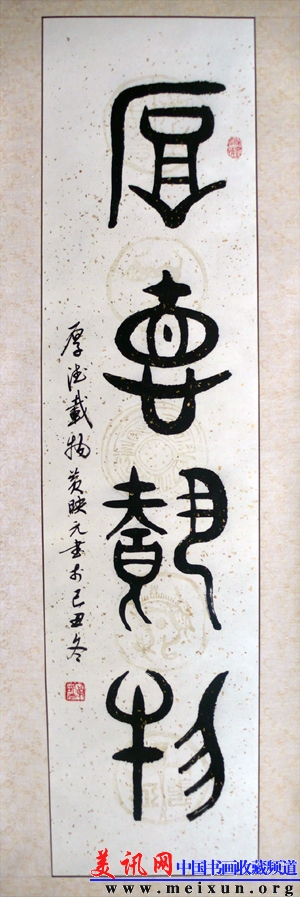 厚德载物
厚德載物 黄映元书于己丑冬
美讯网 中国书画收藏频道
www.meixun.org